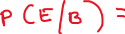 P(E/B) =